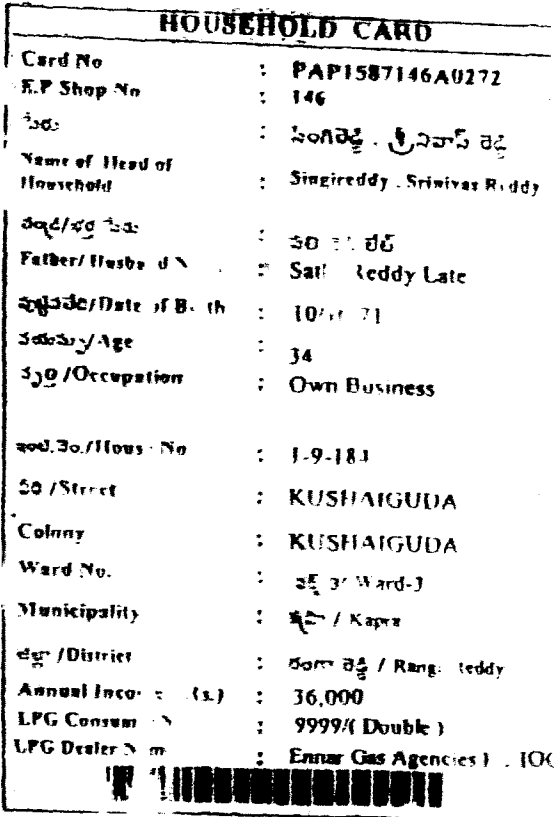 HOUSEHOLD CARD
Card No : PAP1587146A0272
F.P Shop No : 146
పేరు : సింగిరెడ్డి . శ్రీనివాస్ రెడ్డి
Name of Head of
Household : Singireddy . Srinivas Reddy
తండ్రి/భర్త పేరు : రెడ్డి లేట్
Father/ : Reddy Late
పుట్టినతేది/Date of Birth :
వయస్సు/Age : 34
వృత్తి /Occupation : Own Business
ఇంటి.నెం./House No :
వీధి /Street : KUSHAIGUDA
Colony : KUSHAIGUDA
Ward No. : Ward-3
Municipality : కాప్రా / Kapra
జిల్లా /District : రంగా రెడ్డి / Ranga Reddy
Annual : 36,000
LPG : 9999/( Double )
LPG Dealer : Ennar Gas Agencies